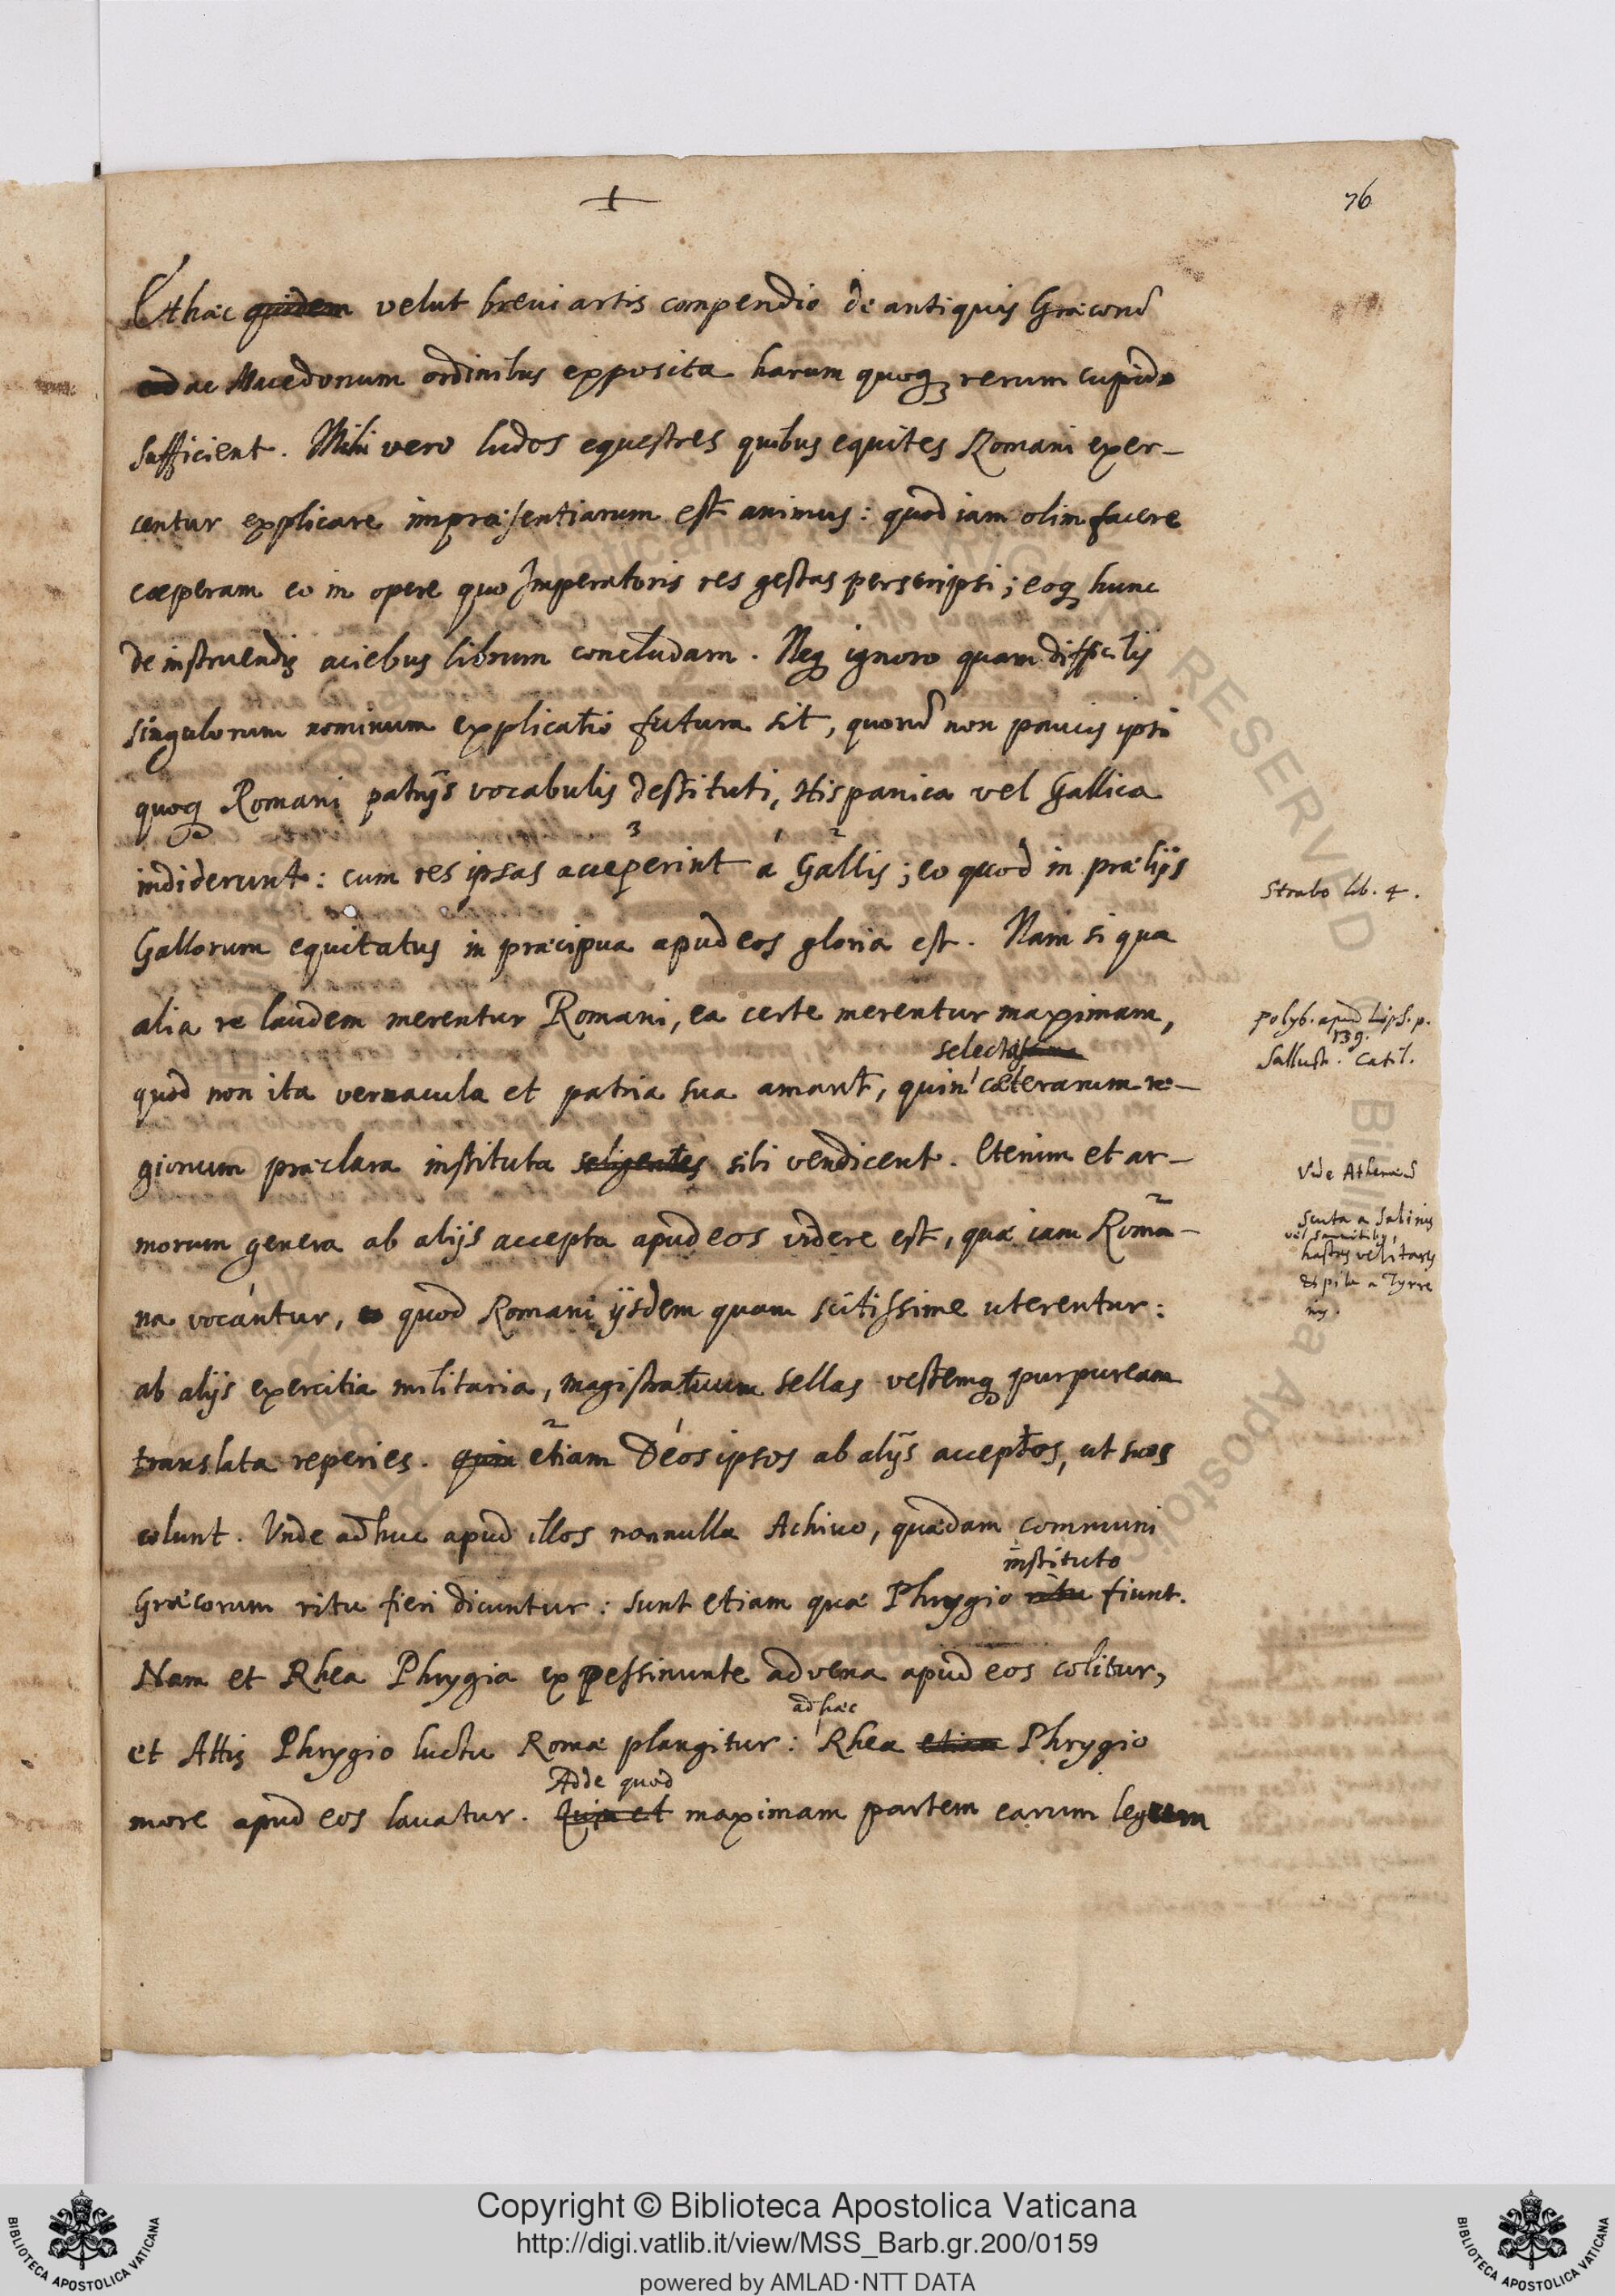 76
Et hæc quidem velut brevi artis compendio de antiquis Græcorũ
ad ac Macedonum ordinibus exposita harum quoq; rerum cupido
sufficient. Mihi vero ludos equestres quibus equites Romani exer-
centur explicare impræsentiarum est animus: quod iam olim facere
cœperam eo in opere quo Imperatoris res gestas perscripsi; eoq; hunc
de instruendis aciebus librum concludam. Neq; ignoro quam difficilis
singulorum nominum explicatio futura sit, quorũ non paucis ipsi
quoq; Romani patrijs vocabulis destituti, Hispanica vel Gallica
indiderunt: cum res ipsas acceperint a Gallis; eo quod in prælijs
3 1 2
Strabo lib. 4.
Gallorum equitatus in præcipua apud eos gloria est. Nam si qua
alia re laudem merentur Romani, ea certe merentur maximam,
Polyb. apud Lips. p.
139.
Sallust. Catil.
selecta
quod non ita vernacula et patria sua amant, quin cæterarum re-
gionum præclara instituta seligentes sibi vendicent. Etenim et ar-
Vide Athenæũ
morum genera ab alijs accepta apud eos videre est, quæ iam Roma-
Scuta a Sabinis
vel Samnitibus,
hastas velitares
et pila a Tyrre
nis.
na vocantur, quod Romani ijsdem quam scitissime uterentur:
ab alijs exercitia militaria, magistratuum sellas vestemq; purpuream
translata reperies. quin etiam Deos ipsos ab alijs acceptos, ut suos
2 1
colunt. Vnde adhuc apud illos nonnulla Achivo, quædam communi
instituto
Græcorum ritu fieri dicuntur: sunt etiam quæ Phrygio ritu fiunt.
Nam et Rhea Phrygia ex Pessinunte advena apud eos colitur,
ad hæc
et Attis Phrygio luctu Romæ plangitur: Rhea etiam Phrygio
Adde quod
more apud eos lavatur. Quin et maximam partem earum legum
Copyright © Biblioteca Apostolica Vaticana
http://digi.vatlib.it/view/MSS_Barb.gr.200/0159
powered by AMLAD·NTT DATA
BIBLIOTECA APOSTOLICA VATICANA
BIBLIOTECA APOSTOLICA VATICANA